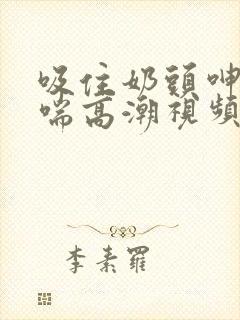 吸住奶頭呻
喘高潮視頻
李素羅